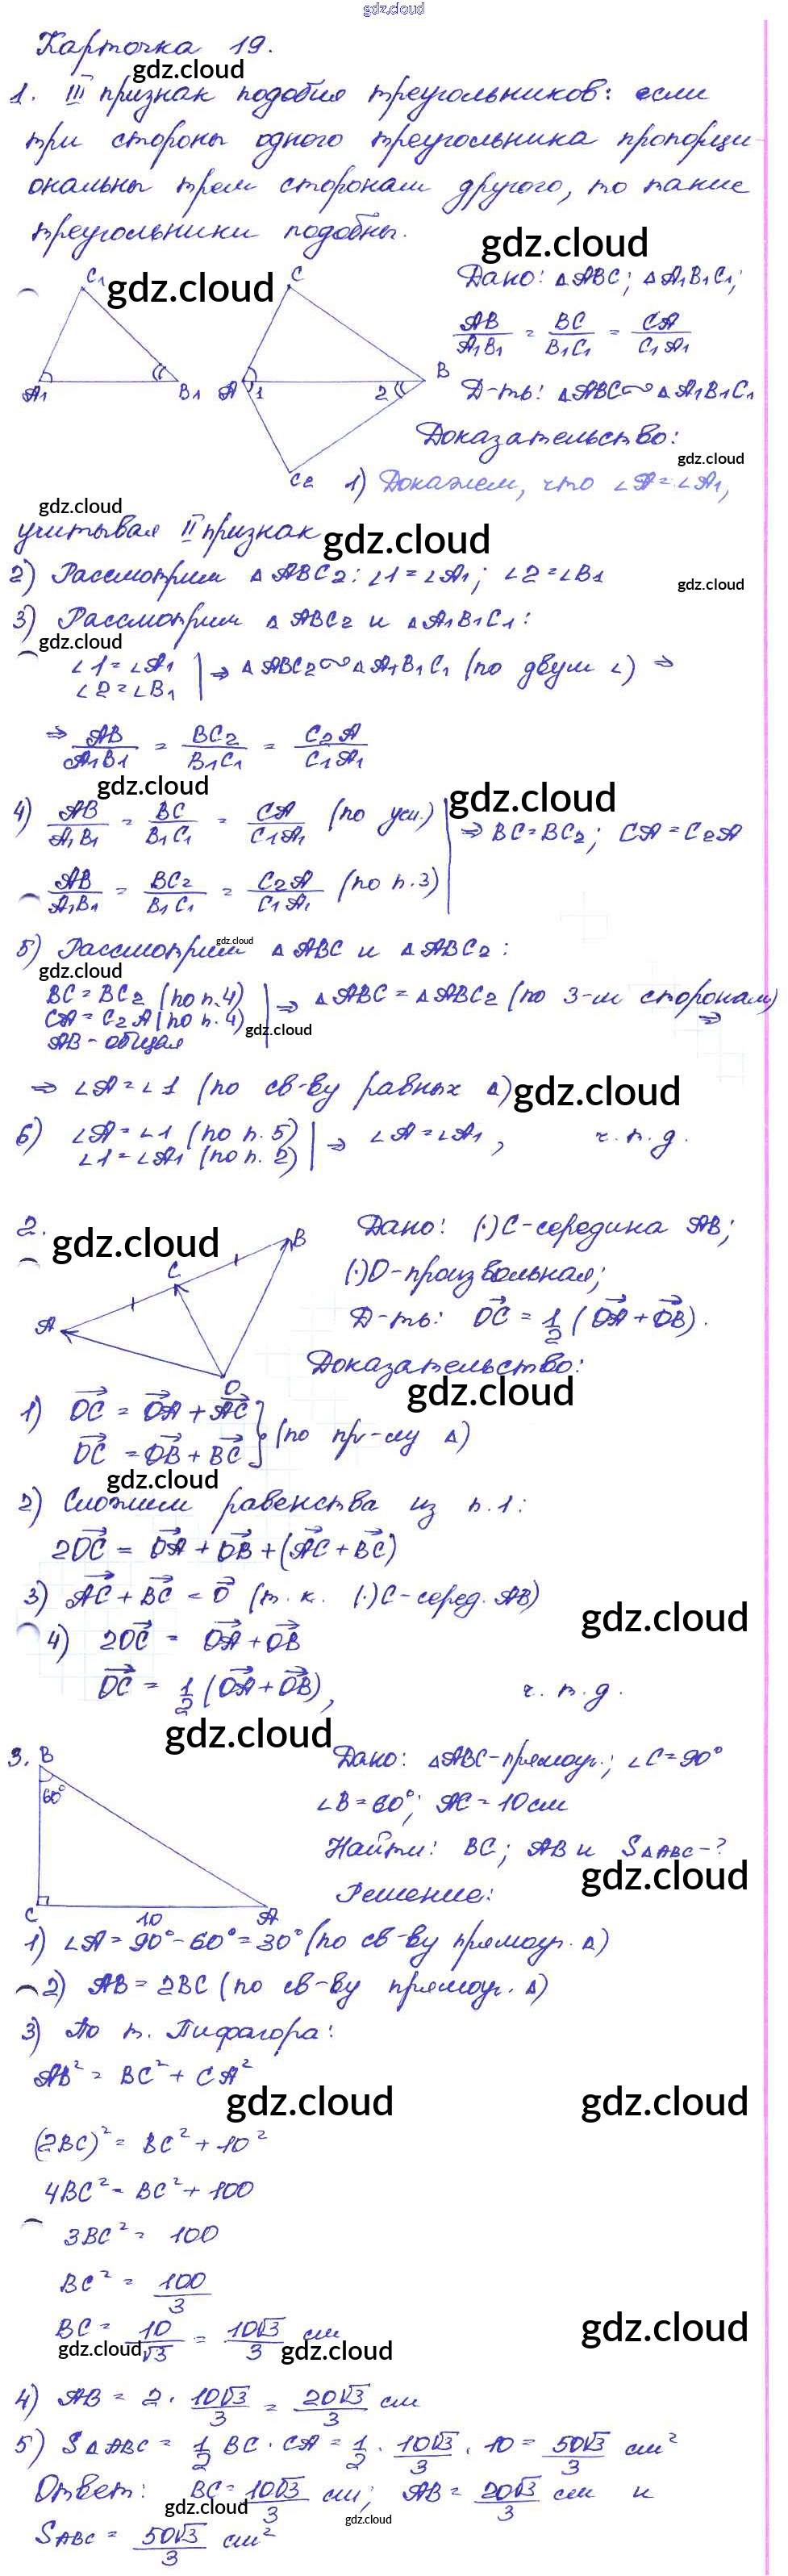 gdz.cloud
Карточка 19.
gdz.cloud
1. III признак подобия треугольников: если
три стороны одного треугольника пропорци-
ональны трем сторонам другого, то такие
треугольники подобны.
gdz.cloud
C1 gdz.cloud C
A1 B1 A 1 2 B
C2
Дано: △ABC; △A1B1C1;
AB/A1B1 = BC/B1C1 = CA/C1A1
Д-ть: △ABC∾△A1B1C1
Доказательство:
gdz.cloud
1) Докажем, что ∠A=∠A1,
gdz.cloud
учитывая II признак
gdz.cloud
2) Рассмотрим △ABC2: ∠1=∠A1; ∠2=∠B1
gdz.cloud
3) Рассмотрим △ABC2 и △A1B1C1:
gdz.cloud
∠1=∠A1 | ⇒ △ABC2∾△A1B1C1 (по двум ∠) ⇒
∠2=∠B1
⇒ AB/A1B1 = BC2/B1C1 = C2A/C1A1
gdz.cloud gdz.cloud
4) AB/A1B1 = BC/B1C1 = CA/C1A1 (по усл.) | ⇒ BC=BC2; CA=C2A
AB/A1B1 = BC2/B1C1 = C2A/C1A1 (по п.3)
gdz.cloud
5) Рассмотрим △ABC и △ABC2:
gdz.cloud
BC=BC2 (по п.4) | ⇒ △ABC=△ABC2 (по 3-м сторонам)
CA=C2A (по п.4) ⇒
gdz.cloud
AB-общая
⇒ ∠A=∠1 (по св-ву равных △)
gdz.cloud
6) ∠A=∠1 (по п.5) | ⇒ ∠A=∠A1, ч.т.д.
∠1=∠A1 (по п.2)
2. gdz.cloud
A C B O
Дано: (·)C-середина AB;
(·)O-произвольная;
Д-ть: OC = 1/2 (OA+OB).
Доказательство:
gdz.cloud
1) OC = OA + AC } (по пр-лу △)
OC = OB + BC
gdz.cloud
2) Сложим равенства из п.1:
2OC = OA + OB + (AC + BC)
3) AC + BC = O (т.к. (·)C-серед. AB)
gdz.cloud
4) 2OC = OA+OB
OC = 1/2 (OA+OB), ч.т.д.
gdz.cloud
3. B
60°
C 10 A
Дано: △ABC-прямоуг.; ∠C=90°
∠B=60°; AC=10см
Найти: BC; AB и S△ABC-?
gdz.cloud
Решение:
1) ∠A=90°-60°=30° (по св-ву прямоуг.△)
2) AB=2BC (по св-ву прямоуг.△)
3) По т. Пифагора:
AB²=BC²+CA²
gdz.cloud gdz.cloud
(2BC)²=BC²+10²
4BC²=BC²+100
3BC²=100
BC²=100/3
BC=10/√3=10√3/3 см
gdz.cloud gdz.cloud gdz.cloud
4) AB=2·10√3/3=20√3/3 см
5) S△ABC=1/2 BC·CA=1/2·10√3/3·10=50√3/3 см²
Ответ: BC=10√3/3 см; AB=20√3/3 см и
gdz.cloud gdz.cloud
SABC=50√3/3 см²